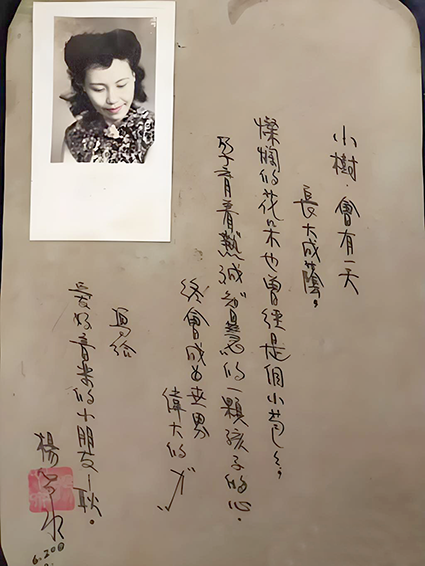 小樹，會有一天
長大成蔭。
燦爛的花朵也曾經是個小苞。
孕育着熱誠智慧的一顆孩子的心，
終會成為世界
偉大的
寫給
愛好音樂的小朋友—耿。
楊
6.200